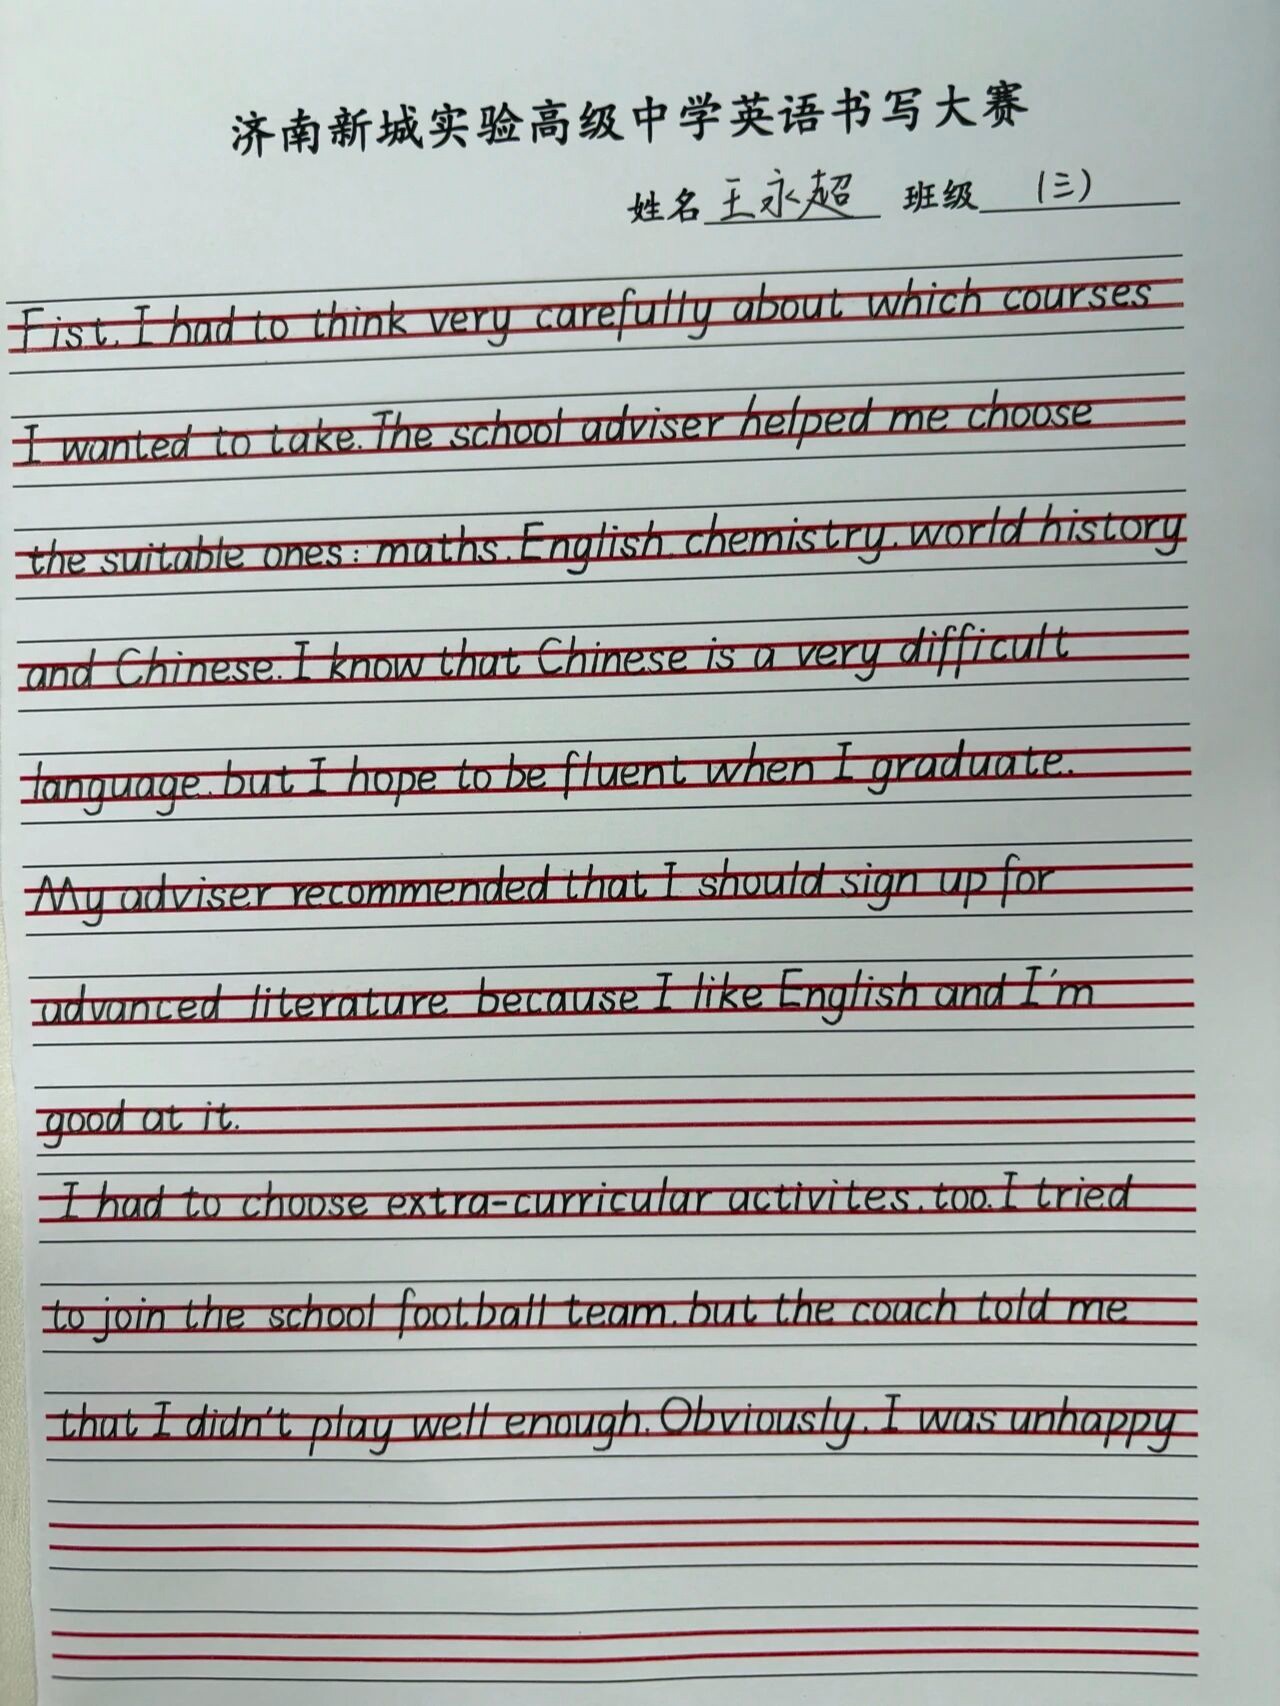 济南新城实验高级中学英语书写大赛
姓名 王永超 班级 (三)
Fist, I had to think very carefully about which courses
I wanted to take. The school adviser helped me choose
the suitable ones: maths, English, chemistry, world history
and Chinese. I know that Chinese is a very difficult
language, but I hope to be fluent when I graduate.
My adviser recommended that I should sign up for
advanced literature because I like English and I'm
good at it.
I had to choose extra-curricular activites, too. I tried
to join the school football team, but the coach told me
that I didn't play well enough. Obviously, I was unhappy